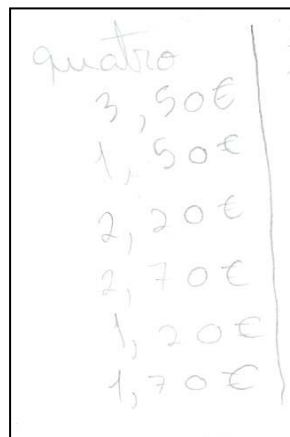 quatro
3,50€
1,50€
2,20€
2,70€
1,20€
1,70€